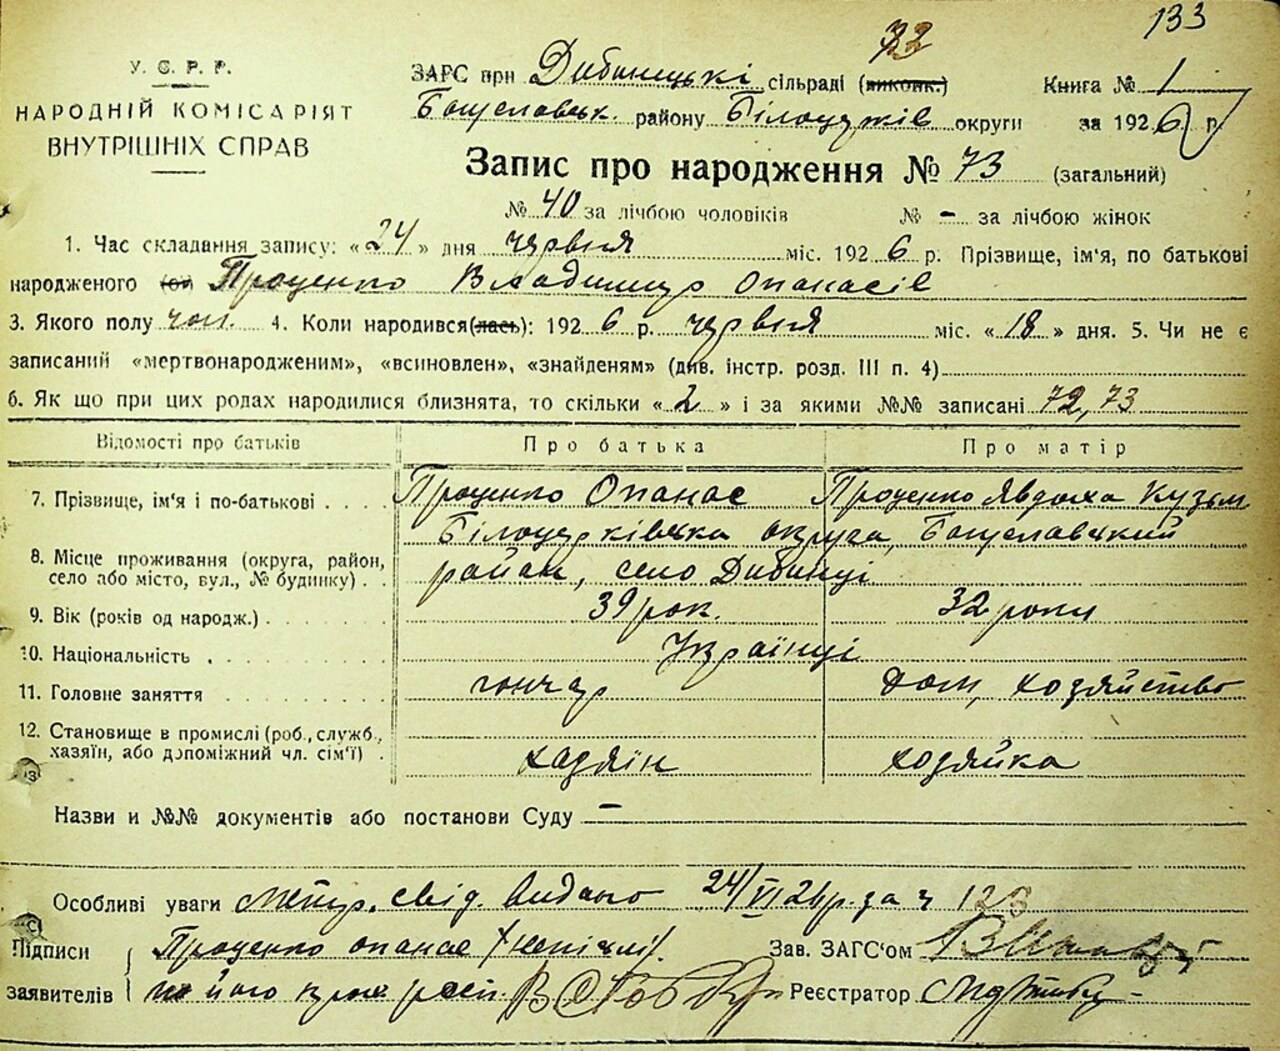 133
32
У. С. Р. Р.
НАРОДНІЙ КОМІСАРІЯТ
ВНУТРІШНІХ СПРАВ
ЗАРС при Дибинецькі сільраді (виконк.) Книга № 1
Богуславськ. району Білоцерків округи за 1926 р.
Запис про народження № 73 (загальний)
№ 40 за лічбою чоловіків № - за лічбою жінок
1. Час складання запису: «24» дня червня міс. 1926 р. Прізвище, ім'я, по батькові
народженого Проценко Владимир Опанасів
3. Якого полу чол. 4. Коли народився(лась): 1926 р. червня міс. «18» дня. 5. Чи не є
записаний «мертвонародженим», «всиновлен», «знайденям» (див. інстр. розд. III п. 4)
6. Як що при цих родах народилися близнята, то скільки «2» і за якими №№ записані 72, 73
Відомості про батьків Про батька Про матір
7. Прізвище, ім'я і по-батькові Проценко Опанас Проценко Явдоха Кузьм
8. Місце проживання (округа, район, село або місто, вул., № будинку) Білоцерківська округа, Богуславський
район, село Дибинці
9. Вік (років од народж.) 39 рок. 32 роки
10. Національність Українці
11. Головне заняття гончар дом, хозяйство
12. Становище в промислі (роб., служб.,
хазяїн, або допоміжний чл. сім'ї) хазяїн хозяйка
Назви и №№ документів або постанови Суду —
Особливі уваги метр. свід. видано 24/VI 26 р. за ч 123
Підписи Проценко опанас (непісьм). Зав. ЗАГС'ом
заявителів Реєстратор